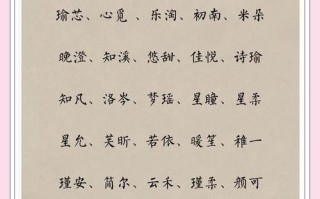 瑜芯、心觅、乐淘、初南、米朵
晚澄、知溪、悠甜、佳悦、诗瑜
知凡、洛岑、梦瑶、星瞳、星柔
星允、芙昕、若依、暖笙、稚一
瑾安、简尔、云禾、瑾柔、颜可